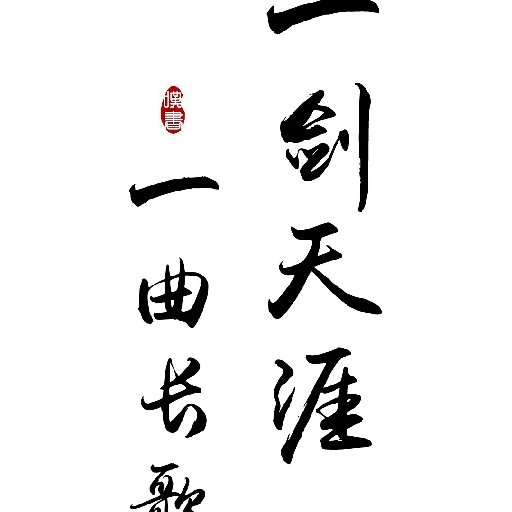 一剑天涯
一曲长歌